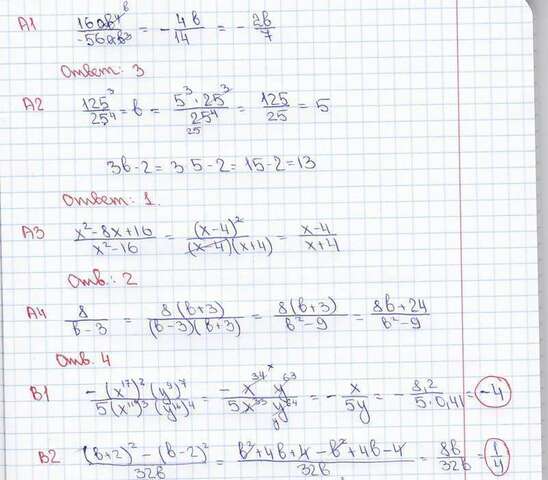 A1 16ab⁴ / -56ab³ = - 4b/14 = - 2b/7
Ответ: 3
A2 125³/25⁴ = b = 5³·25³/25⁴ = 125/25 = 5
25
3b-2 = 3·5-2 = 15-2 = 13
Ответ: 1.
A3 x²-8x+16 / x²-16 = (x-4)² / (x-4)(x+4) = x-4 / x+4
Отв.: 2
A4 8 / b-3 = 8(b+3) / (b-3)(b+3) = 8(b+3) / b²-9 = 8b+24 / b²-9
Отв. 4
B1 -(x¹⁷)²(y⁹)⁷ / 5(x¹¹)³(y¹⁶)⁴ = - x³⁴ y⁶³ / 5x³³ y⁶⁴ = - x/5y = - 8,2 / 5·0,41 = -4
B2 (b+2)² - (b-2)² / 32b = b²+4b+4-b²+4b-4 / 32b = 8b/32b = 1/4